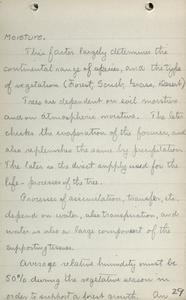 MOISTURE.
This factor largely determines the
continental range of species, and the type
of vegetation (Forest, Scrub, Grass, Desert)
Trees are dependent on soil moisture
and on atmospheric moisture. The later
checks the evaporation of the former, and
also replenishes the same by precipitation.
The later is the direct supply used for the
life-processes of the tree.
Processes of assimilation, transfer, etc.,
depend on water, also transpiration, and
water is also a large component of the
supporting tissues.
Average relative humidity must be
50% during the vegetative season in
order to support a forest growth. An 29